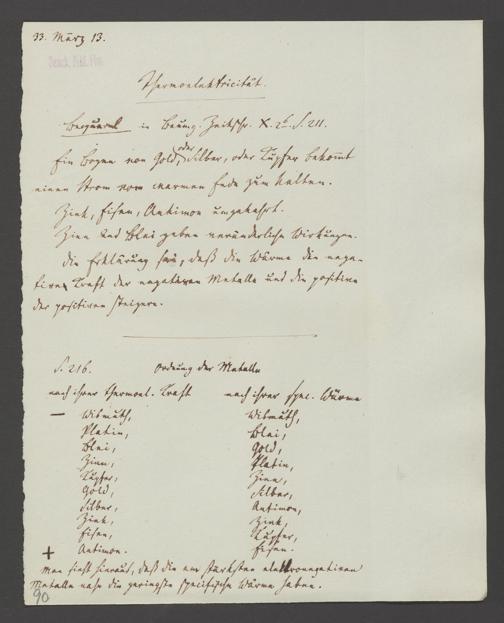 33. März 13.
Thermoelektricität.
Becquerel in Baumg. Zeitschr. X. 2t. S. 211.
Ein Bogen von Gold, oder Silber, oder Kupfer bekomt
einen Strom vom warmen Ende zum kalten.
Zink, Eisen, Antimon umgekehrt.
Zinn und Blei geben veränderliche Wirkungen.
Die Erklärung sei, daß die Wärme die nega-
tive Kraft der negativen Metalle und die positive
der positiven steigere.
S. 216. Ordnung der Metalle
nach ihrer thermoel. Kraft nach ihrer spec. Wärme
— Wismuth, Wismuth,
Platin, Blei,
Blei, Gold,
Zinn, Platin,
Kupfer, Zinn,
Gold, Silber,
Silber, Antimon,
Zink, Zink,
Eisen, Kupfer,
+ Antimon. Eisen.
Man sieht hieraus, daß die am stärksten elektronegativen
Metalle nahe die geringste specifische Wärme haben.
90